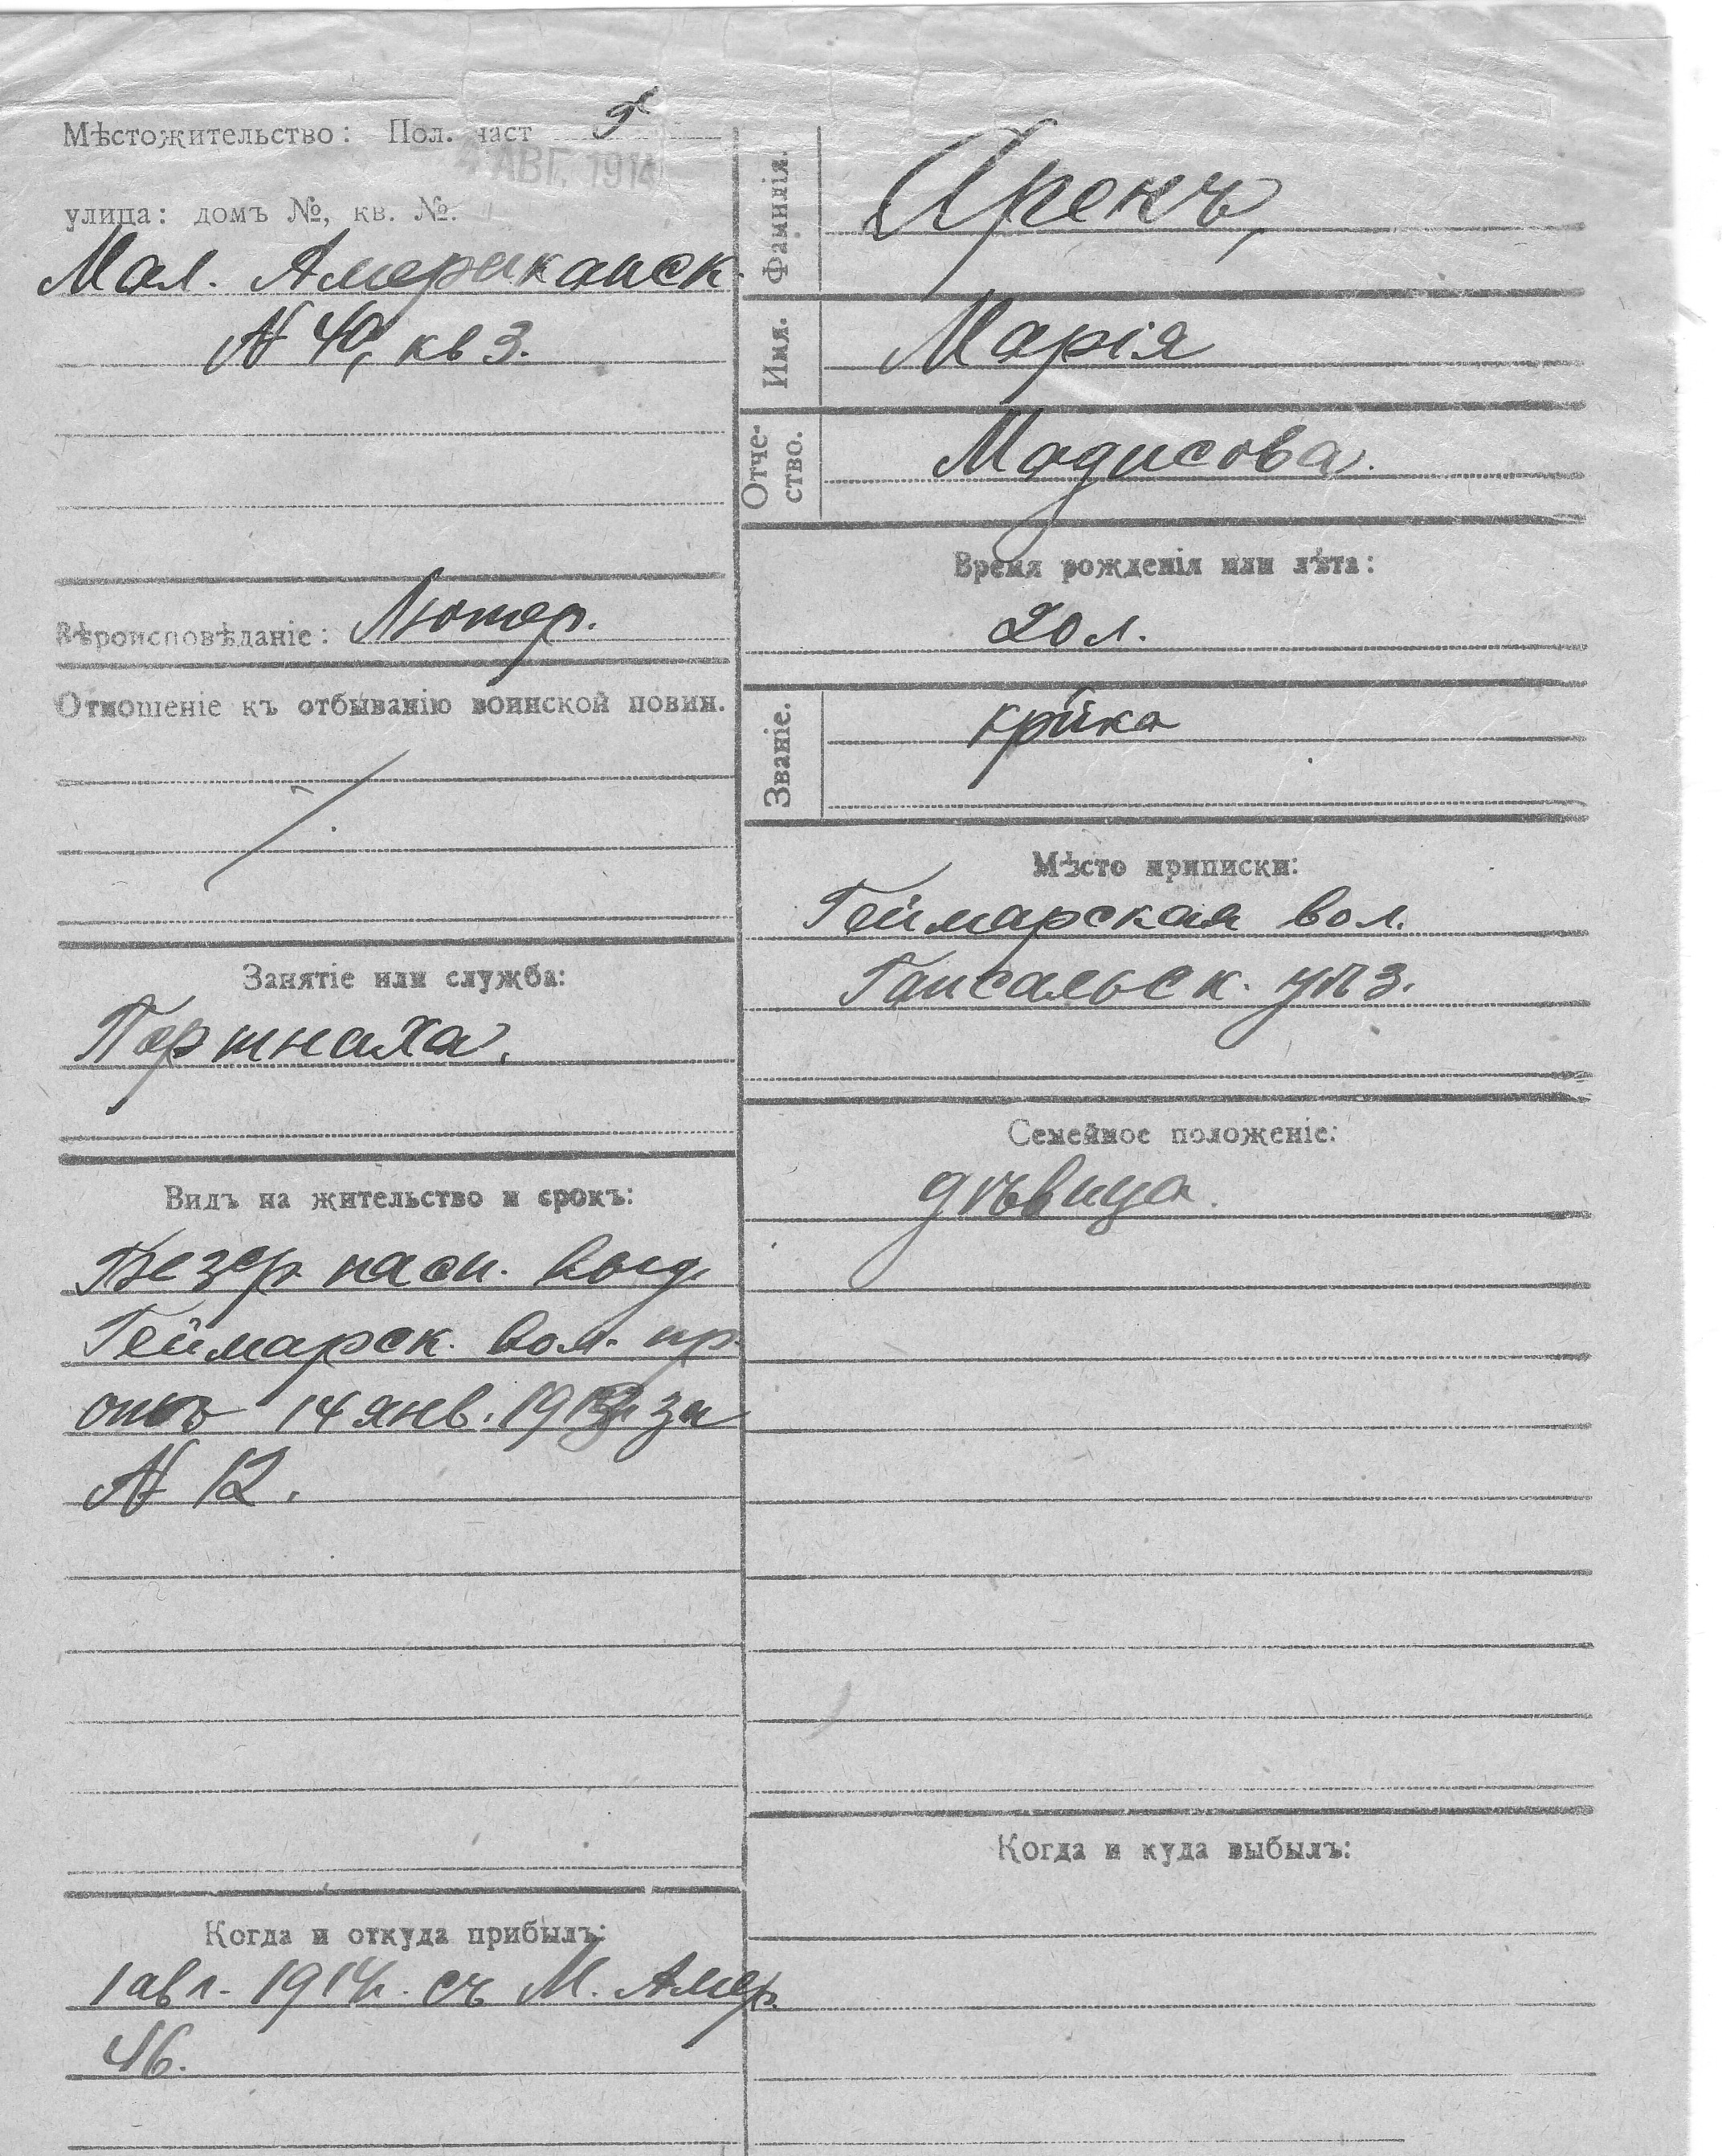 Мѣстожительство: Пол. част
4 АВГ. 1914
улица: домъ №, кв. №.
Мал. Американск.
№ 40, кв 3.
Вѣроисповѣданіе: Лютер.
Отношеніе къ отбыванію воинской повин.
Занятіе или служба:
Портниха.
Видъ на жительство и срокъ:
Безср. пасп. выд.
Геймарск. вол. пр.
отъ 14 янв. за
№ 12.
Когда и откуда прибылъ:
1 авг. 1914 г. съ М. Амер.
46.
Фамилія. Арекъ,
Имя. Марія
Отчество. Мадисова.
Время рожденія или лѣта:
20 л.
Званіе. кр'ика
Мѣсто приписки:
Геймарская вол.
Гапсальск. уѣз.
Семейное положеніе:
дѣвица.
Когда и куда выбылъ: